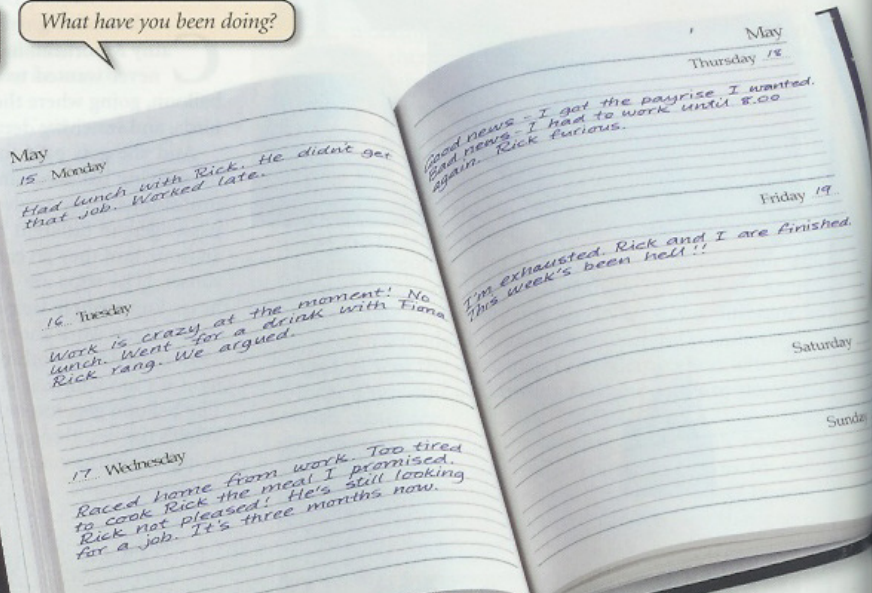 What have you been doing?
May
15 Monday
Had lunch with Rick. He didn't get
that job. Worked late.
16 Tuesday
Work is crazy at the moment! No
lunch. Went for a drink with Fiona
Rick rang. We argued.
17 Wednesday
Raced home from work. Too tired
to cook Rick the meal I promised.
Rick not pleased! He's still looking
for a job. It's three months now.
May
Thursday 18
Good news - I got the payrise I wanted.
Bad news - I had to work until 8.00
again. Rick furious.
Friday 19
I'm exhausted. Rick and I are finished.
This week's been hell!!
Saturday
Sunday